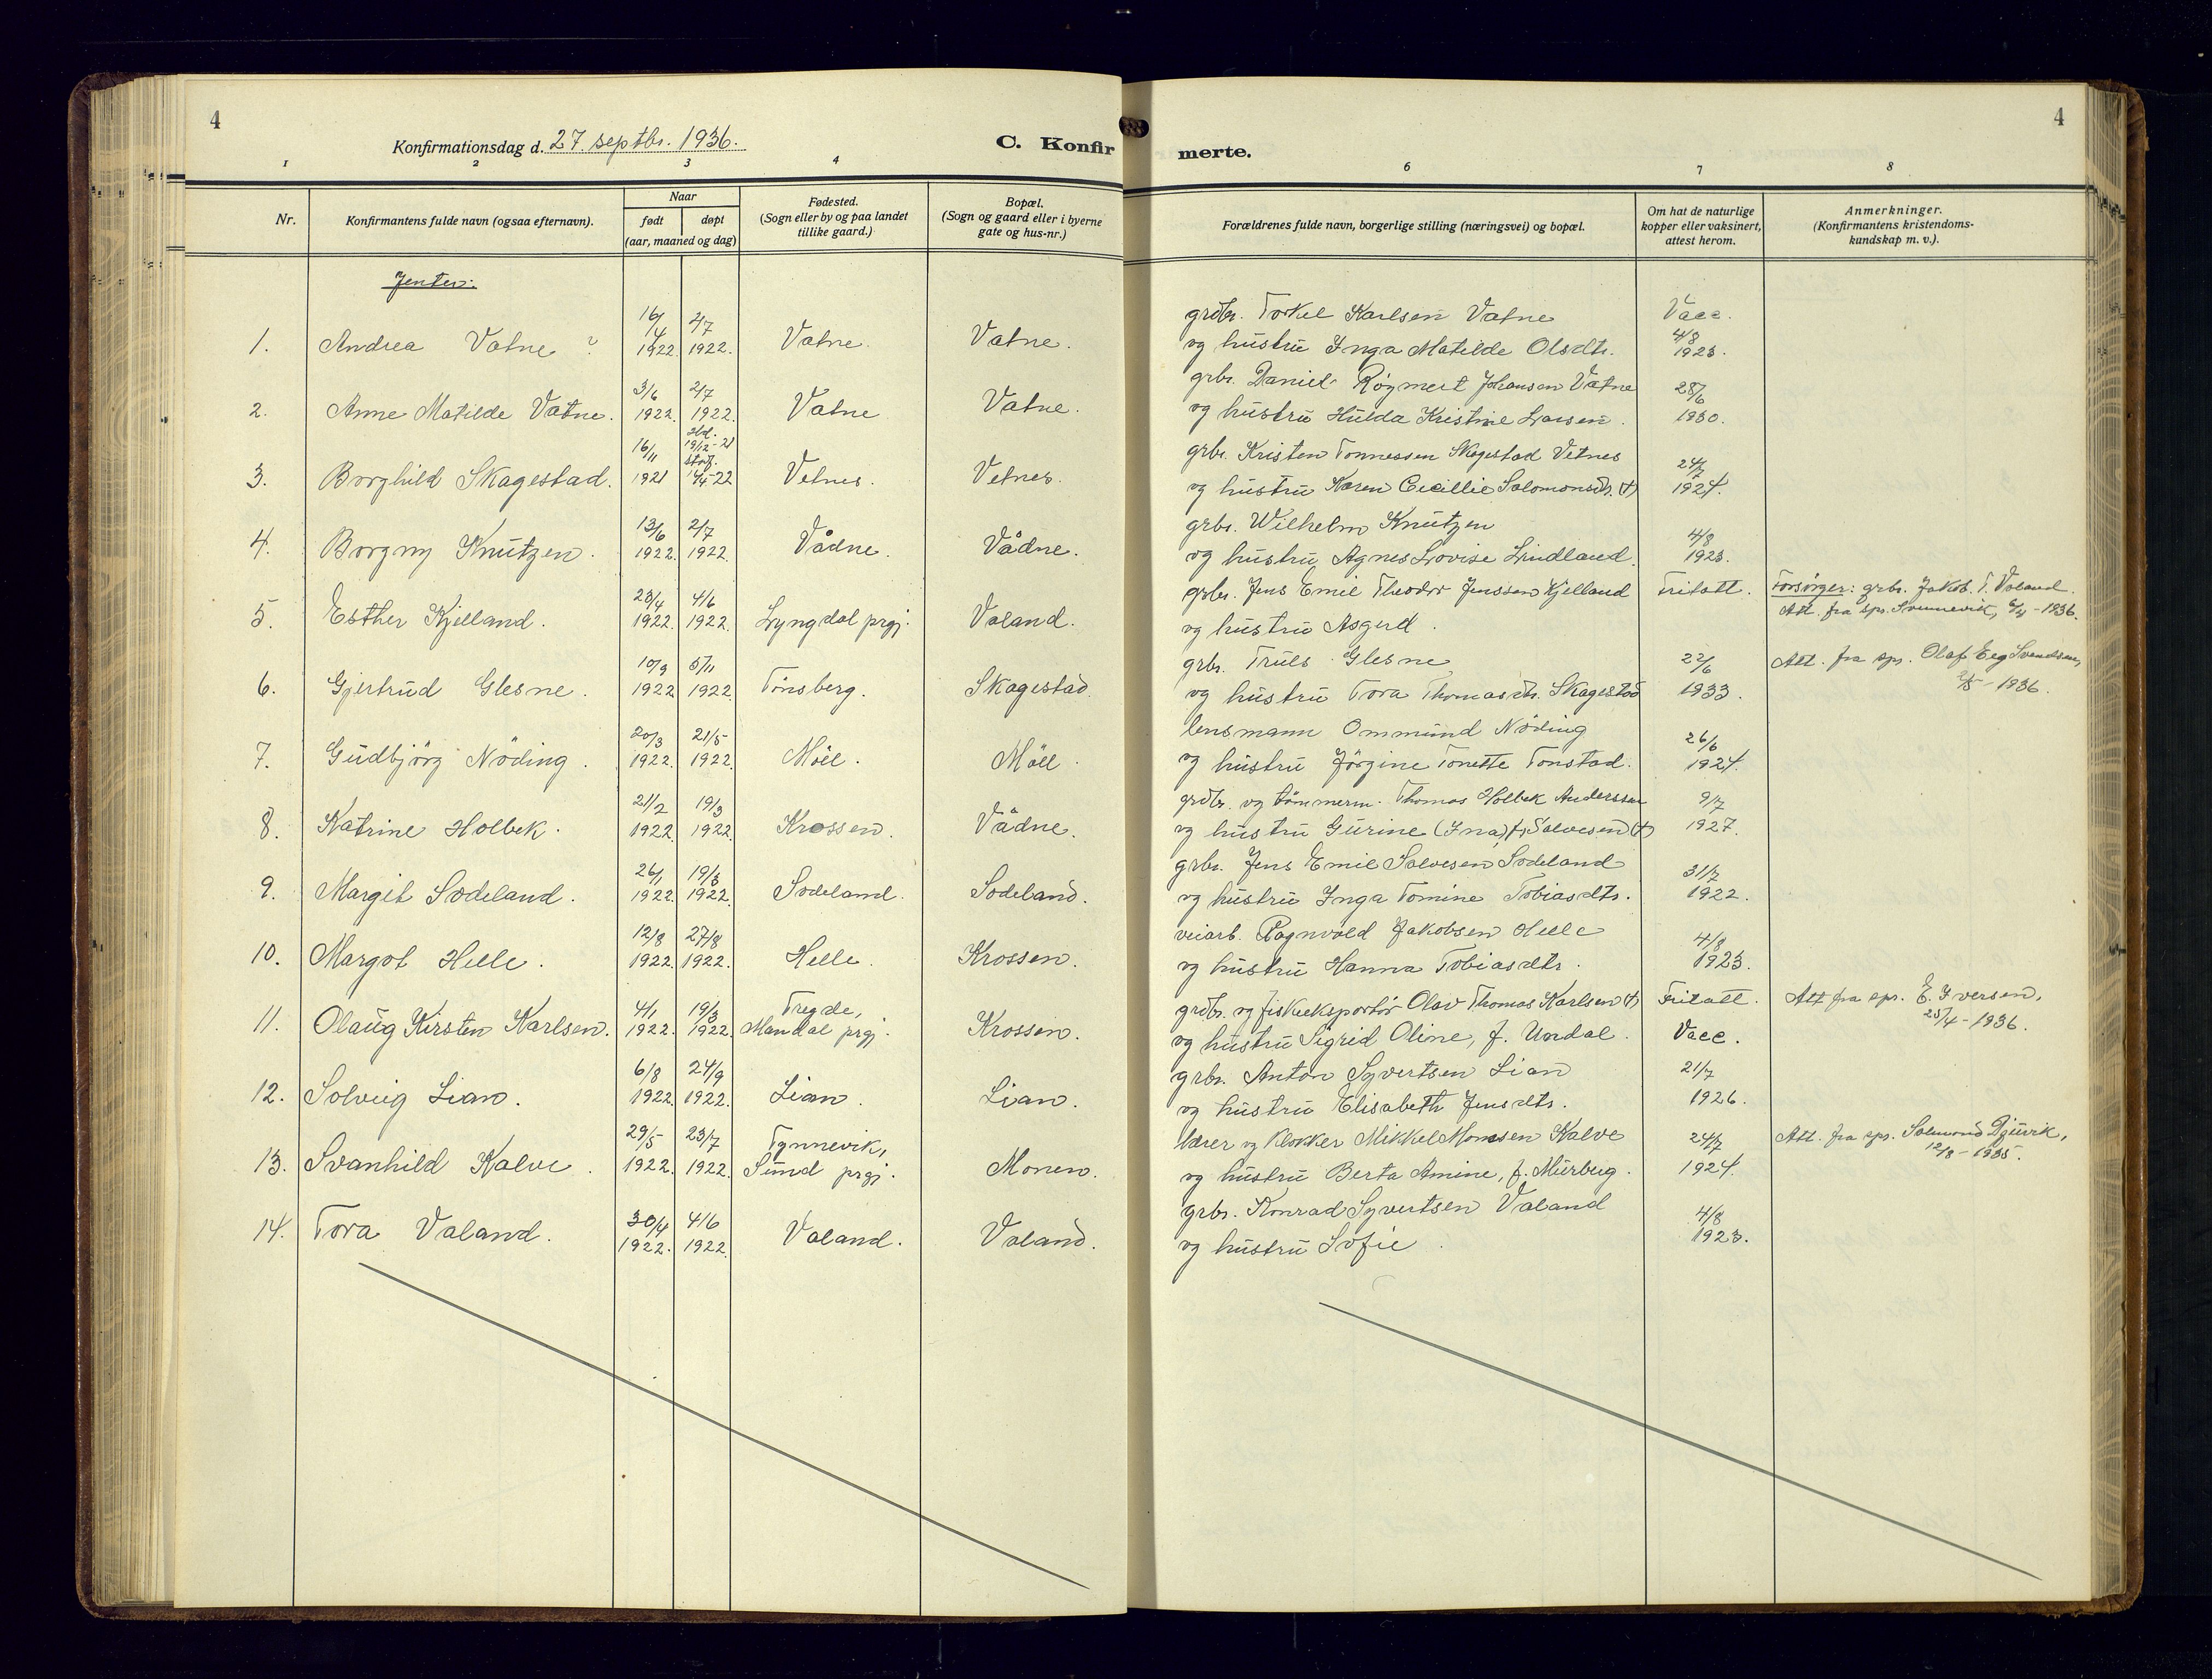 4
Konfirmationsdag d. 27. septbr. 1936.
C. Konfirmerte.
4
1 2 3 4 6 7 8
Nr.
Konfirmantens fulde navn (ogsaa efternavn).
Naar
født døpt
(aar, maaned og dag)
Fødested.
(Sogn eller by og paa landet
tillike gaard.)
Bopæl.
(Sogn og gaard eller i byerne
gate og hus-nr.)
Forældrenes fulde navn, borgerlige stilling (næringsvei) og bopæl.
Om hat de naturlige
kopper eller vaksinert,
attest herom.
Anmerkninger.
(Konfirmantens kristendoms-
kundskap m. v.).
Jenter:
1. Andrea Vatne 16/4 1922. 2/7 1922. Vatne. Vatne.
grdbr. Torkel Karlsen Vatne
og hustru Inga Matilde Olsdtr.
Vacc. 4/8 1923.
2. Anne Matilde Vatne. 3/6 1922. 2/7 1922. Vatne Vatne.
grbr. Daniel Røgmert Johansen Vatne
og hustru Hulda Kristine Larsen.
28/6 1930.
3. Borghild Skagestad. 16/11 1921 hbd. 19/12-21 stadf. 17/4-22 Vetnes. Vetnes.
grbr. Kristen Tønnessen Skagestad Vetnes
og hustru Karen Cecillie Salomonsdtr. (†)
24/7 1924.
4. Borgny Knutzen. 13/6 1922. 2/7 1922 Vådne. Vådne.
grbr. Wilhelm Knutzen
og hustru Agnes Lovise Lindland.
4/8 1923.
5. Esther Kjelland. 23/4 1922. 4/6 1922. Lyngdal prgj. Valand.
grbr. Jens Emil Theodor Jenssen Kjelland
og hustru Asgerd.
Fritatt.
Forsørger: grbr. Jakob T. Valand.
Att. fra spr. Svennevik, -1936.
6. Gjertrud Glesne. 10/9 1922. 5/11 1922. Tønsberg. Skagestad.
grbr. Truls Glesne
og hustru Tora Thomasdtr. Skagestad
22/6 1933.
Att. fra spr. Olaf Eeg Svendsen,
2/5-1936.
7. Gudbjörg Nöding. 20/3 1922. 21/5 1922. Möll. Möll.
lensmann Ommund Nöding
og hustru Jörgine Tonette Tonstad.
26/6 1924.
8. Katrine Holbek. 21/2 1922. 19/3 1922. Krossen. Vådne.
grdbr. og tömmerm. Thomas Holbek Anderssen
og hustru Gurine (Ina) f. Salvesen (†)
9/7 1927.
9. Margit Sodeland. 26/1 1922. 19/3 1922. Sodeland. Sodeland.
grbr. Jens Emil Salvesen Sodeland
og hustru Inga Tomine Tobiasdtr.
31/7 1922.
10. Margot Helle. 12/8 1922. 27/8 1922. Helle. Krossen.
veiarb. Ragnvald Jakobsen Helle
og hustru Hanna Tobiasdtr.
4/8 1923.
11. Olaug Kirsten Karlsen. 4/1 1922. 19/3 1922. Tregde, Mandal prgj. Krossen.
grdbr. og fiskeeksportör Olav Thomas Karlsen (†)
og hustru Sigrid Oline, f. Undal.
Fritatt. Vacc.
Att fra spr. E. Iversen,
25/4-1936.
12. Solveig Lian. 6/8 1922. 24/9 1922. Lian. Lian.
grbr. Anton Syvertsen Lian
og hustru Elisabeth Jensdtr.
21/7 1926.
13. Svanhild Kalve. 29/5 1922. 23/7 1922. Tynnevik, Sund prgj. Monen.
lærer og klokker Mikkel Monsen Kalve
og hustru Berta Amine, f. Murbug.
24/7 1924.
Att. fra spr. Salmond Djuvik,
12/8-1935.
14. Tora Valand. 30/4 1922. 4/6 1922. Valand. Valand.
grbr. Konrad Syvertsen Valand
og hustru Sofie.
4/8 1923.